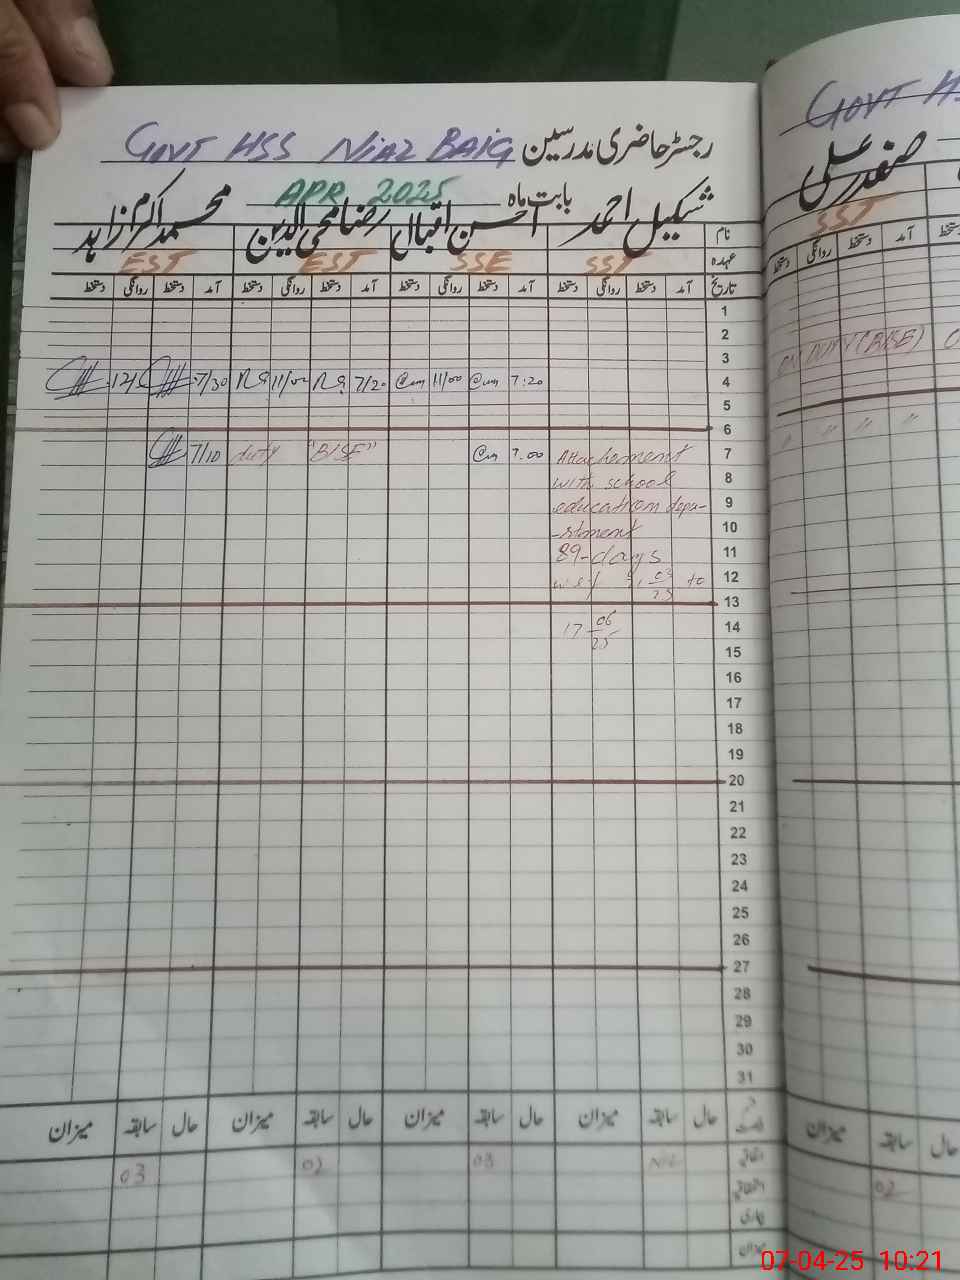 GOVT HSS NIAZ BAIG رجسٹر حاضری مدرسین
بابت ماہ APR 2025
نام شکیل احمد احسن اقبال رضا محی الدین محمد اکرم زاہد
عہدہ SST SSE EST EST
تاریخ آمد دستخط روانگی دستخط آمد دستخط روانگی دستخط آمد دستخط روانگی دستخط آمد دستخط روانگی دستخط
1
2
3
4 7:20 11/00 7/20 11/00 7/30
5
6
7 Attachement 7.00 duty "BISE" 7/10
8 with school
9 education depa-
10 -rtment
11 89-days
12 to
13
14 17 06/25
15
16
17
18
19
20
21
22
23
24
25
26
27
28
29
30
31
حال سابقہ میزان حال سابقہ میزان حال سابقہ میزان حال سابقہ میزان
اتفاقی Nil 03 02 03
استحقاقی
بیماری
میزان
GOVT
صفدر علی
SST
آمد دستخط روانگی دستخط
ON DUTY (BISE)
" " " "
حال سابقہ میزان
02
07-04-25 10:21